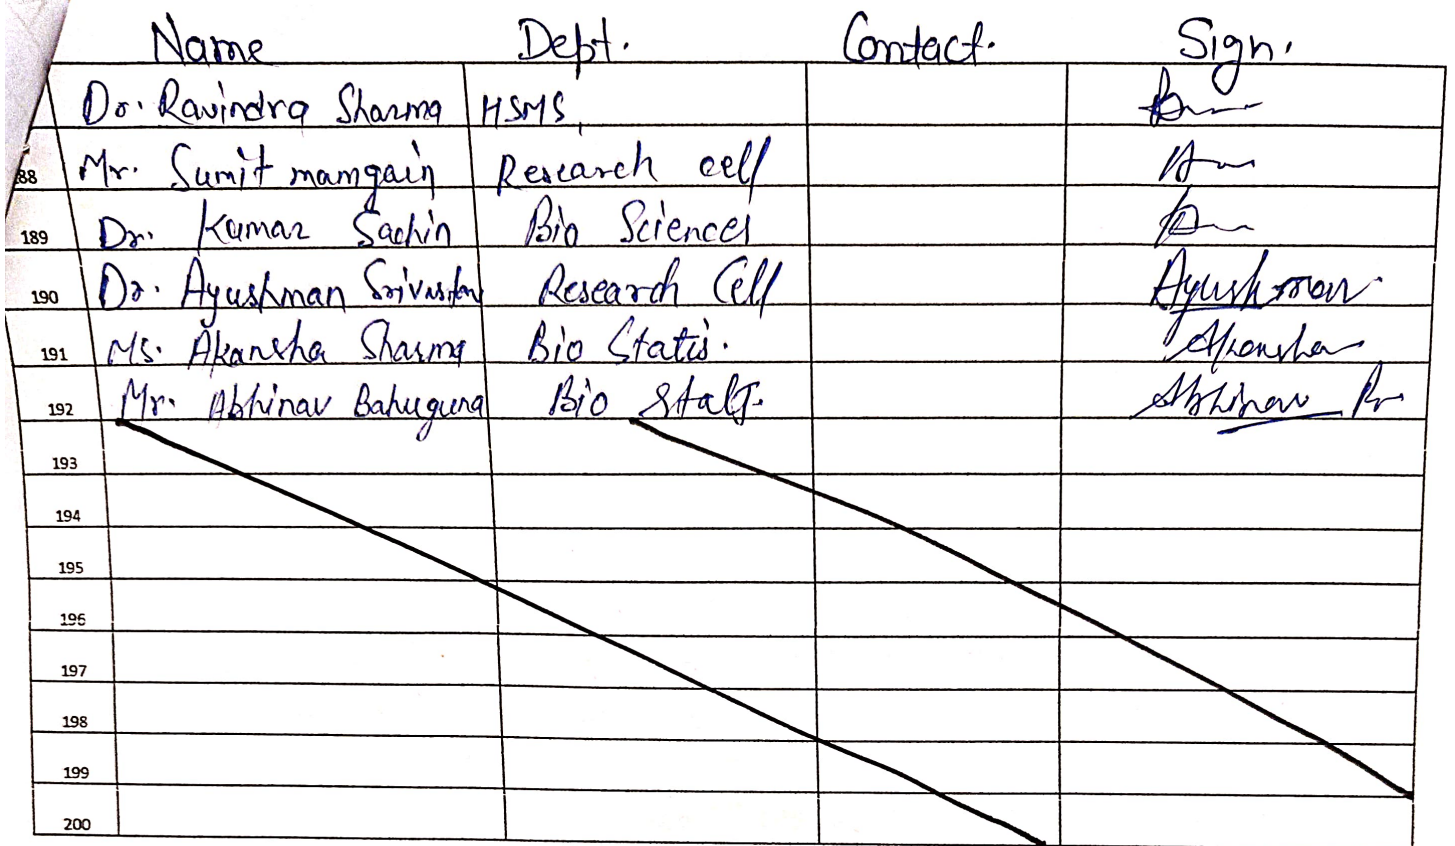 Name Dept. Contact. Sign.
Dr. Ravindra Sharma HSMS
88 Mr. Sumit mamgain Research cell
189 Dr. Kumar Sachin Bio Sciences
190 Dr. Ayushman Srivastav Research Cell Ayushman
191 Ms. Akansha Sharma Bio Statis. Akansha
192 Mr. Abhinav Bahuguna Bio Stat. Abhinav
193
194
195
196
197
198
199
200